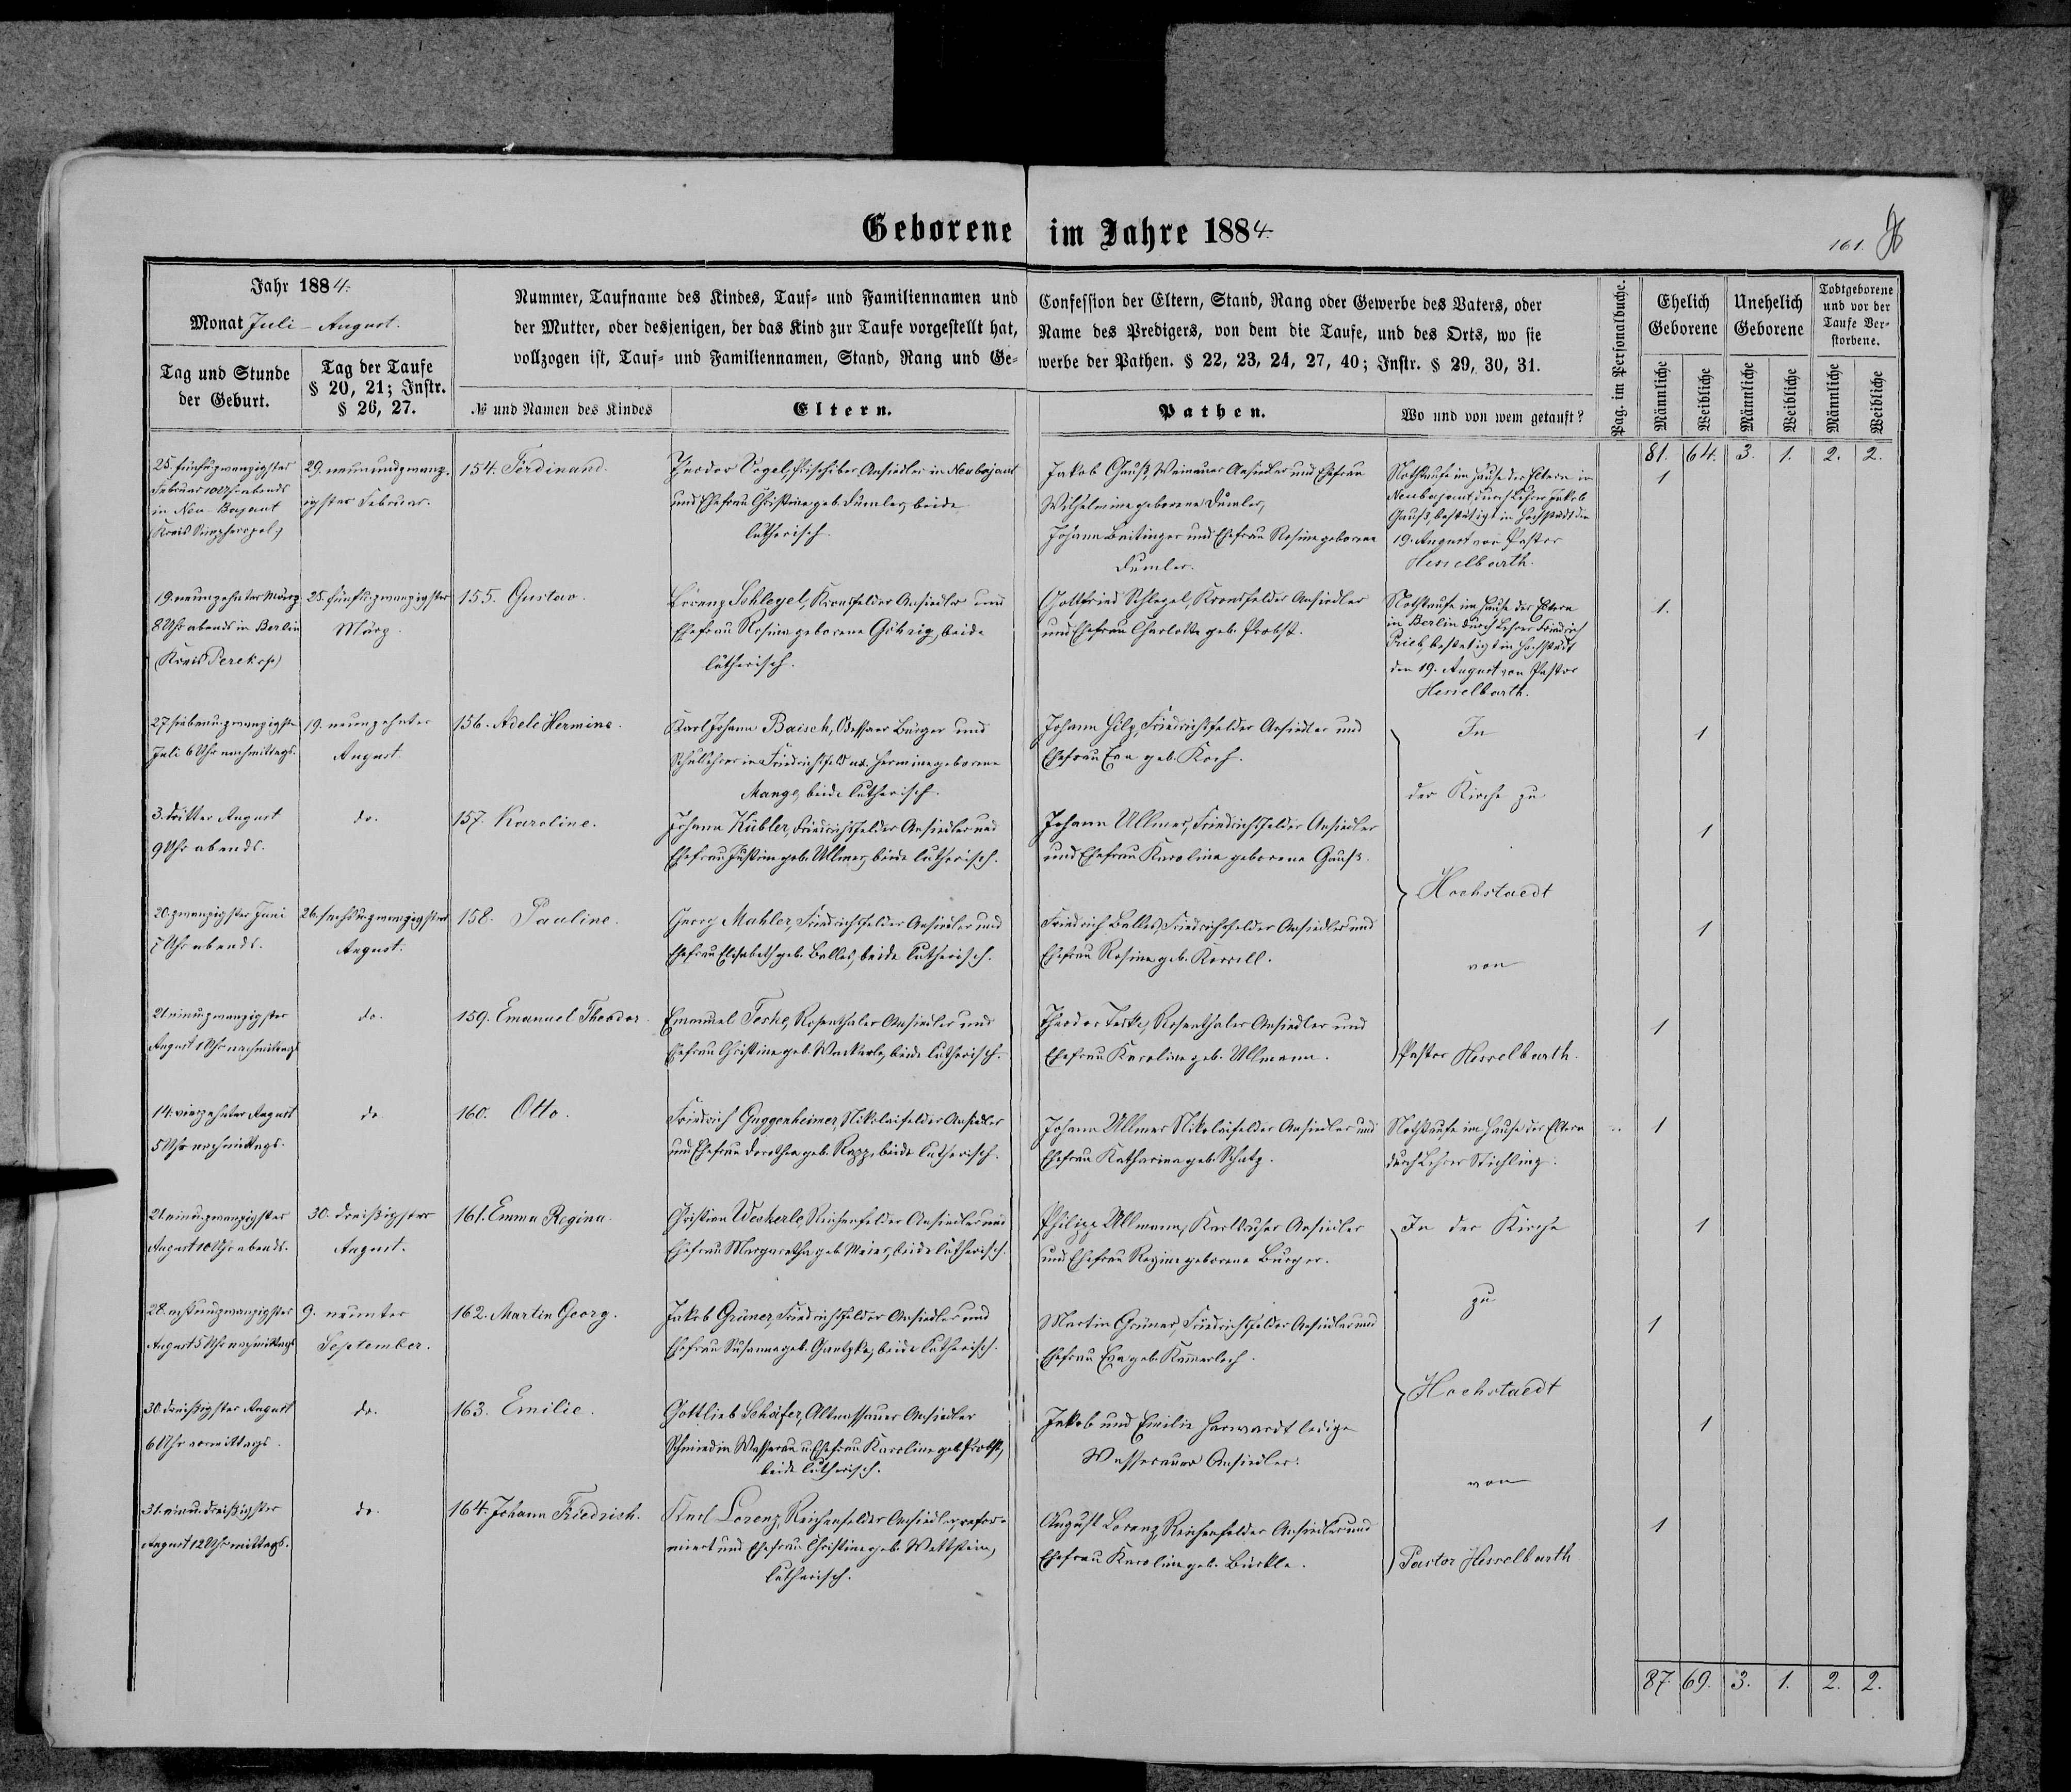 Geborene im Jahre 1884.
161.
Jahr 1884.
Monat Juli - August.
Tag und Stunde
der Geburt.
Tag der Taufe
§ 20, 21; Instr.
§ 26, 27.
Nummer, Taufname des Kindes, Tauf- und Familiennamen und
der Mutter, oder desjenigen, der das Kind zur Taufe vorgestellt hat,
vollzogen ist, Tauf- und Familiennamen, Stand, Rang und Ge-
№ und Namen des Kindes
Eltern.
Confession der Eltern, Stand, Rang oder Gewerbe des Vaters, oder
Name des Predigers, von dem die Taufe, und des Orts, wo sie
werbe der Pathen. § 22, 23, 24, 27, 40; Instr. § 29, 30, 31.
Pathen.
Wo und von wem getauft?
Pag. im Personalbuche.
Ehelich
Geborene
Unehelich
Geborene
Todtgeborene
und vor der
Taufe Ver-
storbene.
Männliche
Weibliche
Männliche
Weibliche
Männliche
Weibliche
81. 64. 3. 1. 2. 2.
25. fünfundzwanzigster
Februar 10 Uhr abends
in Neu-Bajaut
(Kreis Simpheropol)
29. neunundzwanz-
igster Februar.
154. Ferdinand.
Theodor Vogel, Ansiedler in Neubajaut
und Ehefrau Christine geb. Dumler, beide
lutherisch.
Jakob Gauß, Weinauer Ansiedler und Ehefrau
Wilhelmine geborene Dumler,
Johann Beitinger und Ehefrau Rosine geborene
Dumler.
Nothtaufe im Hause der Eltern in
Neubajaut durch Lehrer Jakob
Gauß, bestätigt in Hochstädt den
19. August von Pastor
Hesselbarth.
1
19. neunzehnter März
8 Uhr abends in Berlin
(Kreis Perekop)
25. fünfundzwanzigster
März.
155. Gustav.
Lorenz Schlegel, Kronsfelder Ansiedler und
Ehefrau Rosina geborene Göhrig, beide
lutherisch.
Gottfried Schlegel, Kronsfelder Ansiedler
und Ehefrau Charlotte geb. Probst.
Nothtaufe im Hause der Eltern
in Berlin durch Lehrer Friedrich
Prieb, bestätigt in Hochstädt
den 19. August von Pastor
Hesselbarth.
1.
27. siebenundzwanzigster
Juli 6 Uhr nachmittags.
19. neunzehnter
August.
156. Adele Hermine.
Karl Johann Baisch, Odessaer Bürger und
Schullehrer in Friedrichsfeld u. Hermine geborene
Mange, beide lutherisch.
Johann Hilz, Friedrichsfelder Ansiedler und
Ehefrau Eva geb. Koch.
In
der Kirche zu
Hochstaedt
von
Pastor Hesselbarth.
1
3. dritter August
9 Uhr abends.
do.
157. Karoline.
Johann Kübler, Friedrichsfelder Ansiedler und
Ehefrau Justine geb. Ullmer, beide lutherisch.
Johann Ullmer, Friedrichsfelder Ansiedler
und Ehefrau Karolina geborene Gauß.
1
20. zwanzigster Juni
7 Uhr abends.
26. sechsundzwanzigster
August.
158. Pauline.
Georg Mahler, Friedrichsfelder Ansiedler und
Ehefrau Elisabeth geb. Balles, beide lutherisch.
Friedrich Balles, Friedrichsfelder Ansiedler und
Ehefrau Rosine geb. Korrell.
1
21. einundzwanzigster
August 1 Uhr nachmittags
do.
159. Emanuel Theodor.
Emanuel Teske, Rosenthaler Ansiedler und
Ehefrau Christine geb. Weckerle, beide lutherisch.
Theodor Teske, Rosenthaler Ansiedler und
Ehefrau Karoline geb. Ullmann.
1
14. vierzehnter August
5 Uhr nachmittags.
do
160. Otto.
Friedrich Guggenheimer, Nikolaifelder Ansiedler
und Ehefrau Dorothea geb. Rapp, beide lutherisch.
Johann Ullmer Nikolaifelder Ansiedler und
Ehefrau Katharina geb. Schatz.
Nothtaufe im Hause der Eltern
durch Lehrer Stichling.
1
21. einundzwanzigster
August 10 Uhr abends.
30. dreißigster
August.
161. Emma Regina.
Christian Weckerle, Reichenfelder Ansiedler und
Ehefrau Margaretha geb. Maier, beide lutherisch.
Philipp Ullmann, Karlsruher Ansiedler
und Ehefrau Regine geborene Burger.
In der Kirche
zu
Hochstaedt
von
Pastor Hesselbarth
1
28. achtundzwanzigster
August 5 Uhr nachmittags
9. neunter
September.
162. Martin Georg.
Jakob Grüner, Friedrichsfelder Ansiedler und
Ehefrau Susanna geb. Gantzke, beide lutherisch.
Martin Grüner, Friedrichsfelder Ansiedler und
Ehefrau Eva geb. Kammerloch.
1
30. dreißigster August
6 Uhr vormittags.
do.
163. Emilie.
Gottlieb Schäfer, Altnassauer Ansiedler
Schmied in Wasserau u. Ehefrau Karoline geb. Probst,
beide lutherisch.
Jakob und Emilie Harwardt ledige
Wasserauer Ansiedler.
1
31. einunddreißigster
August 12 Uhr mittags.
do.
164. Johann Friedrich.
Karl Lorenz, Reichenfelder Ansiedler, refor-
miert und Ehefrau Christine geb. Wettstein,
lutherisch.
August Lorenz, Reichenfelder Ansiedler und
Ehefrau Karoline geb. Bürkle.
1
87. 69. 3. 1. 2. 2.